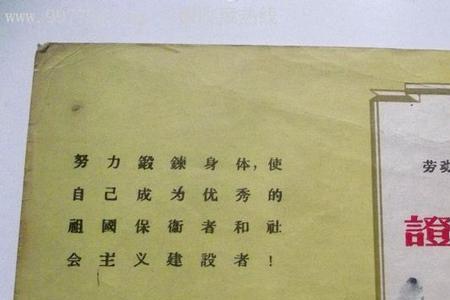 努力鍛鍊身体,使
自己成为优秀的
祖國保衞者和社
会主义建設者!
劳动
證